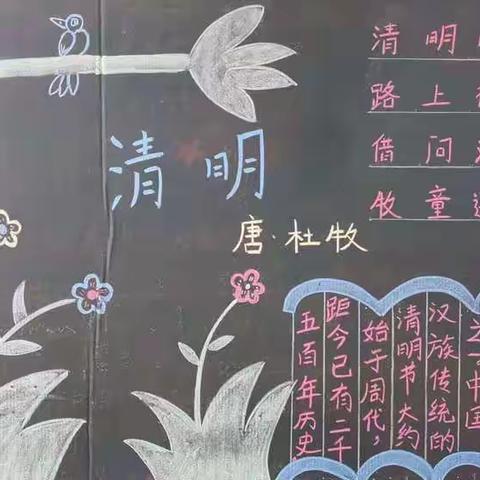 清明
唐·杜牧
清明
路上
借问
牧童
中国
汉族传统的
清明节大约
始于周代，
距今已有二千
五百年历史